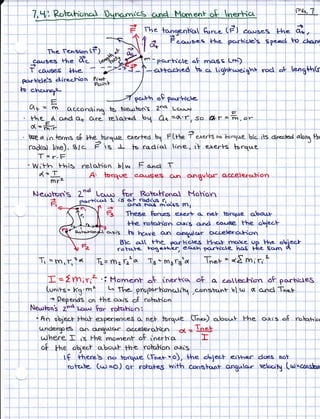 7.4: Rotational Dynamics and Moment of Inertia
PG. 7
The tangential force (F) causes the at,
F causes the particle's speed to change
The Tension (T)
causes the ac
T causes the
particle's direction
to change
Length of Rod
Pivot Point
particle of mass (m)
attached to a lightweight rod of length(r)
path of particle
at = F/m according to Newton's 2nd Law
the α and at are related by at = α·r, so α·r = F/m, or
α = F/m·r
use α in terms of the torque exerted by F (the T exerts no torque b/c it's directed along the
radial line). B/c F is ⊥ to radial line, it exerts torque
T = r·F
With this relation b/w F and T
α = T/mr² A torque causes an angular acceleration
Newton's 2nd Law for Rotational Motion
particle 1 is at radius r1
and has mass m1
F1
F3
F2
Rotational axis
These forces exert a net torque about
the rotation axis and cause the object
to have an angular acceleration
B/c all the particles that make up the object
rotate together, each particle has the same α
T1 = m1r1²α T2 = m2r2²α T3 = m3r3²α Tnet = αΣmiri²
I = Σmiri² : Moment of inertia of a collection of particles
(units = kg·m² ↳ The proportionality constant b/w α and Tnet
→ Depends on the axis of rotation
Newton's 2nd Law for rotation:
• An object that experiences a net torque (Tnet) about the axis of rotation
undergoes an angular acceleration α = Tnet/I
where I is the moment of inertia
of the object about the rotation axis
If there's no torque (Tnet = 0), the object either does not
rotate (ω=0) or rotates with constant angular velocity (ω=constant)